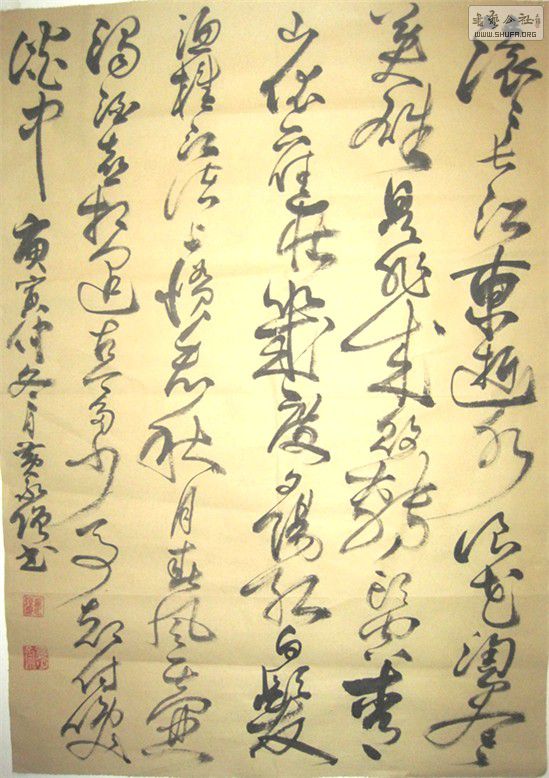 書藝公社
WWW.SHUFA.ORG
滚〻长江東逝水浪花淘尽
英雄是非成敗轉頭空青
山依舊在幾度夕陽红白髮
渔樵江渚上惯看秋月春风一壶
濁酒喜相逢古今多少事都付笑
谈中
庚寅仲冬月黄书